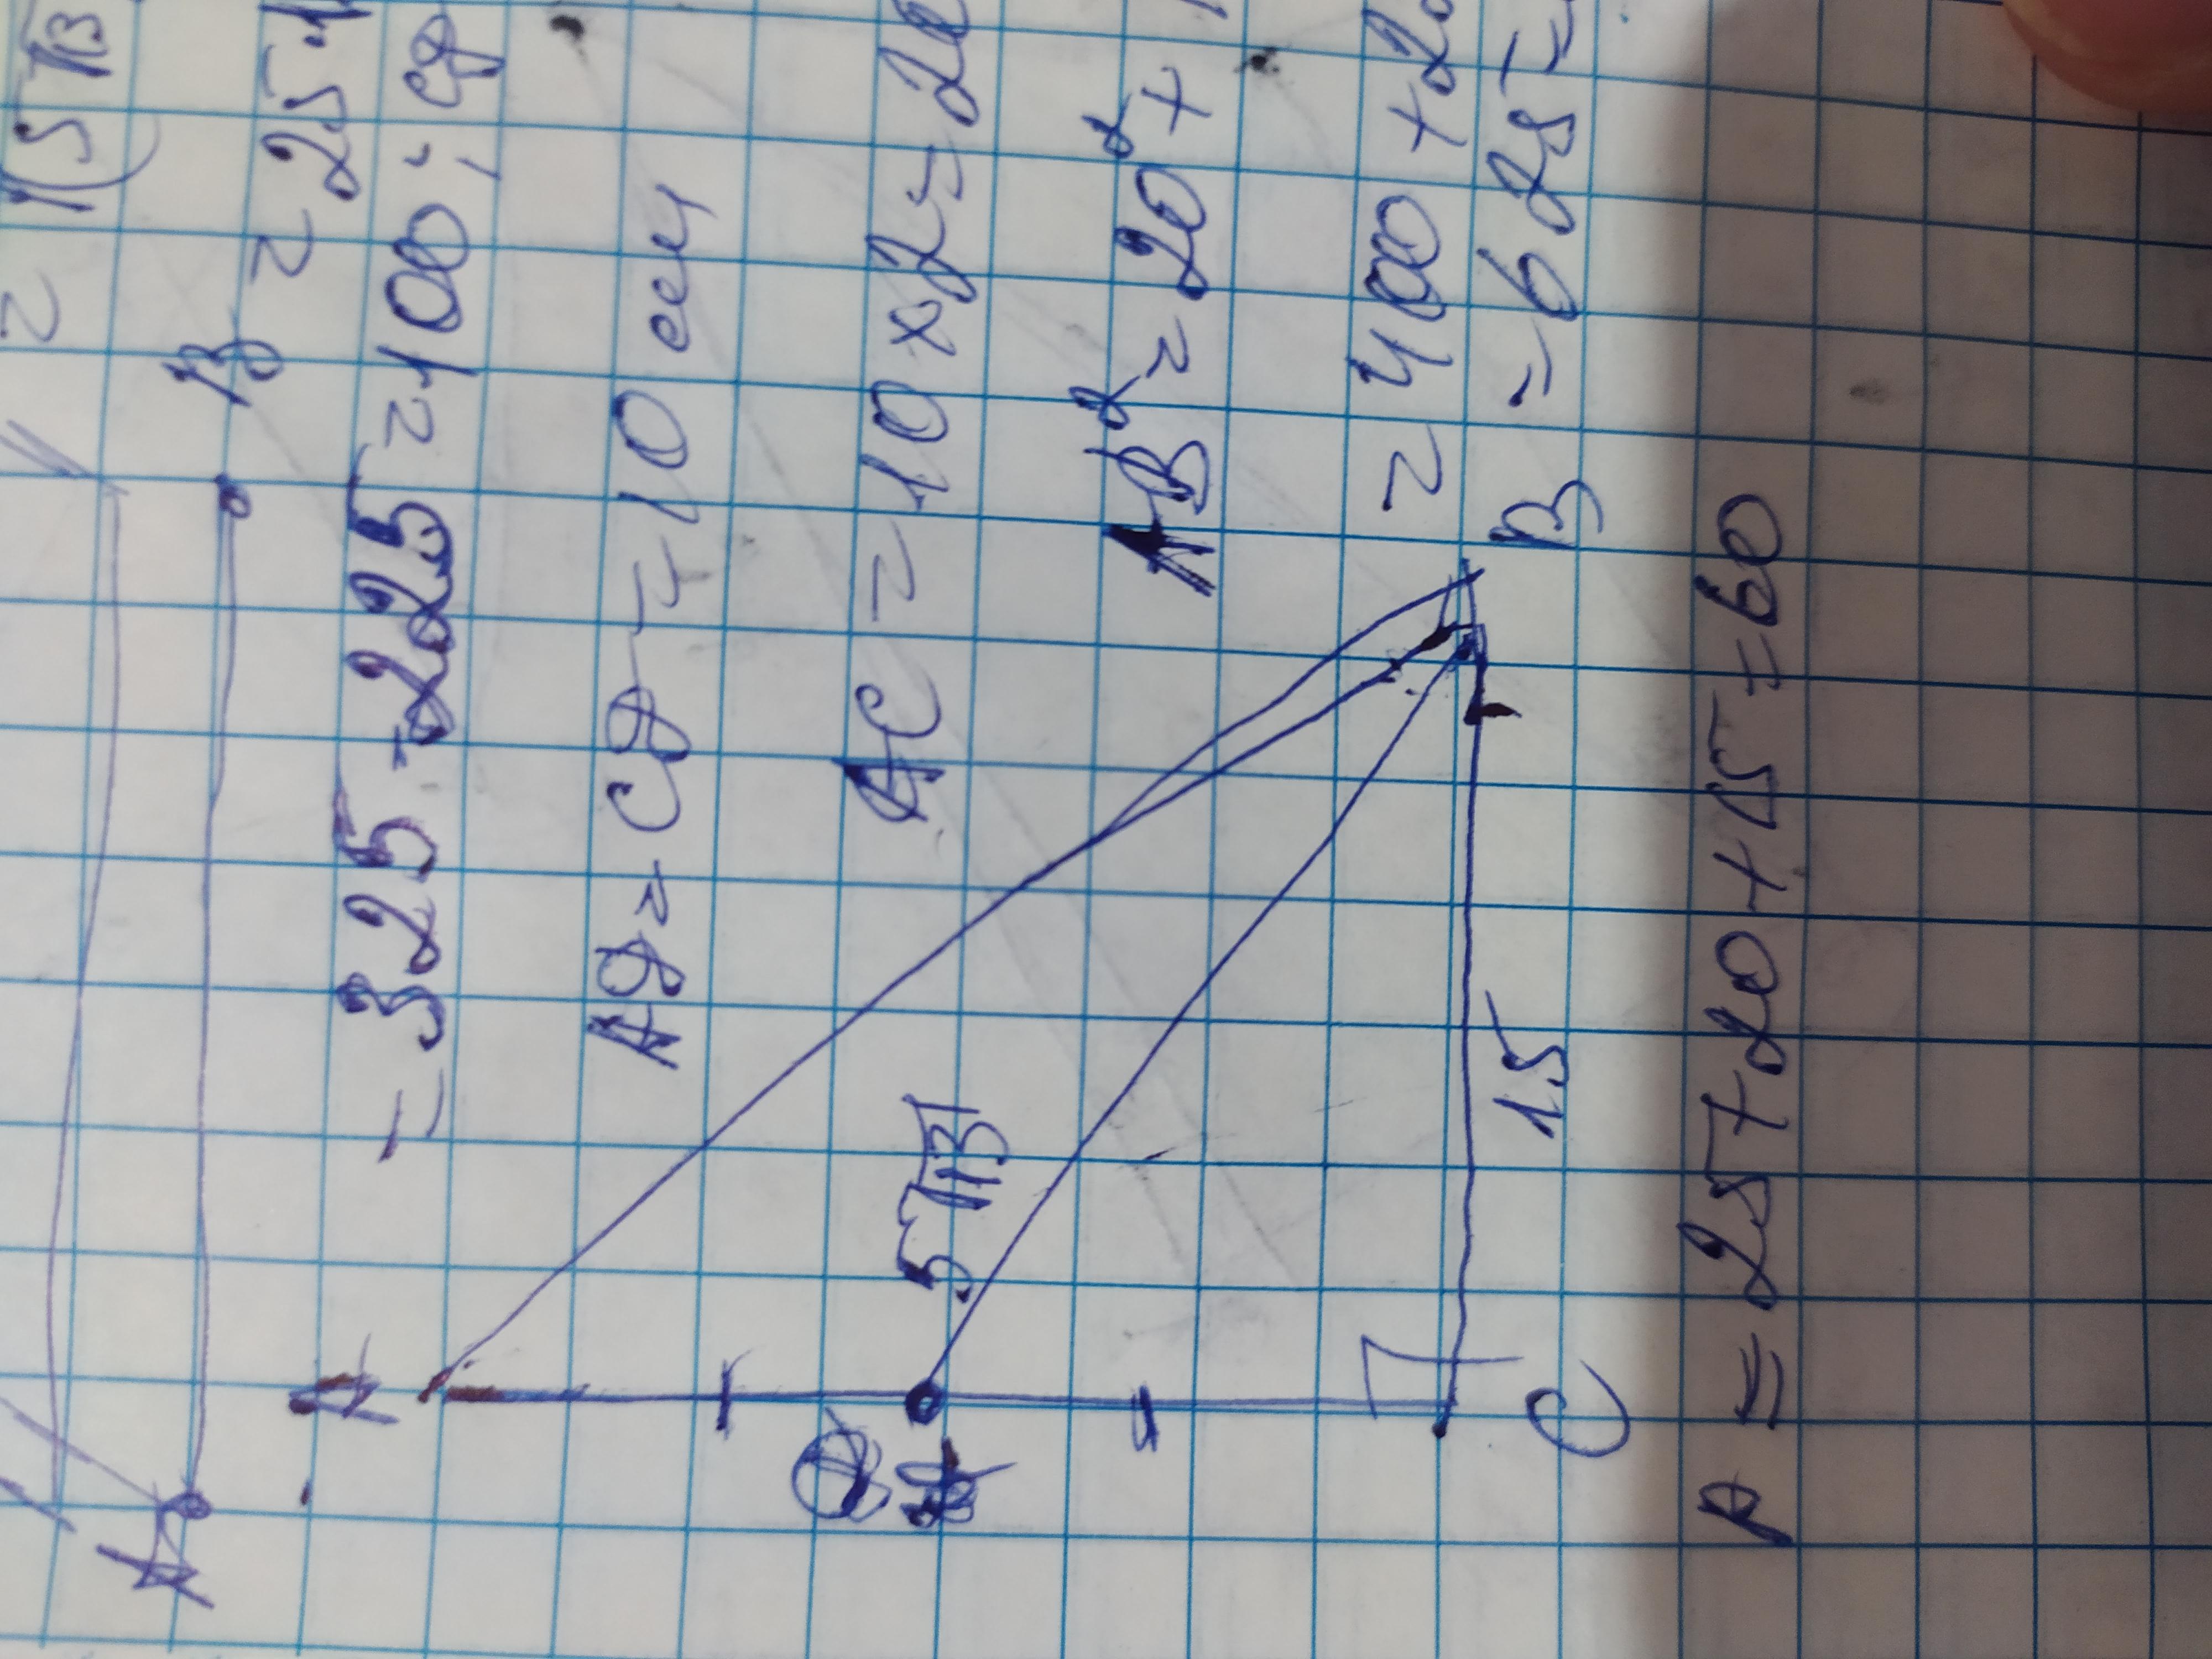 = √(5√13
B = 25·1
= 325 - 225 = 100; CD
A
AD = CD = 10 см
AC = 10 x 2 = 20
AB² = 20² +
= 400 + 2
= 625 =
A
D
5√13
B
15
C
P = 25 + 20 + 15 = 60